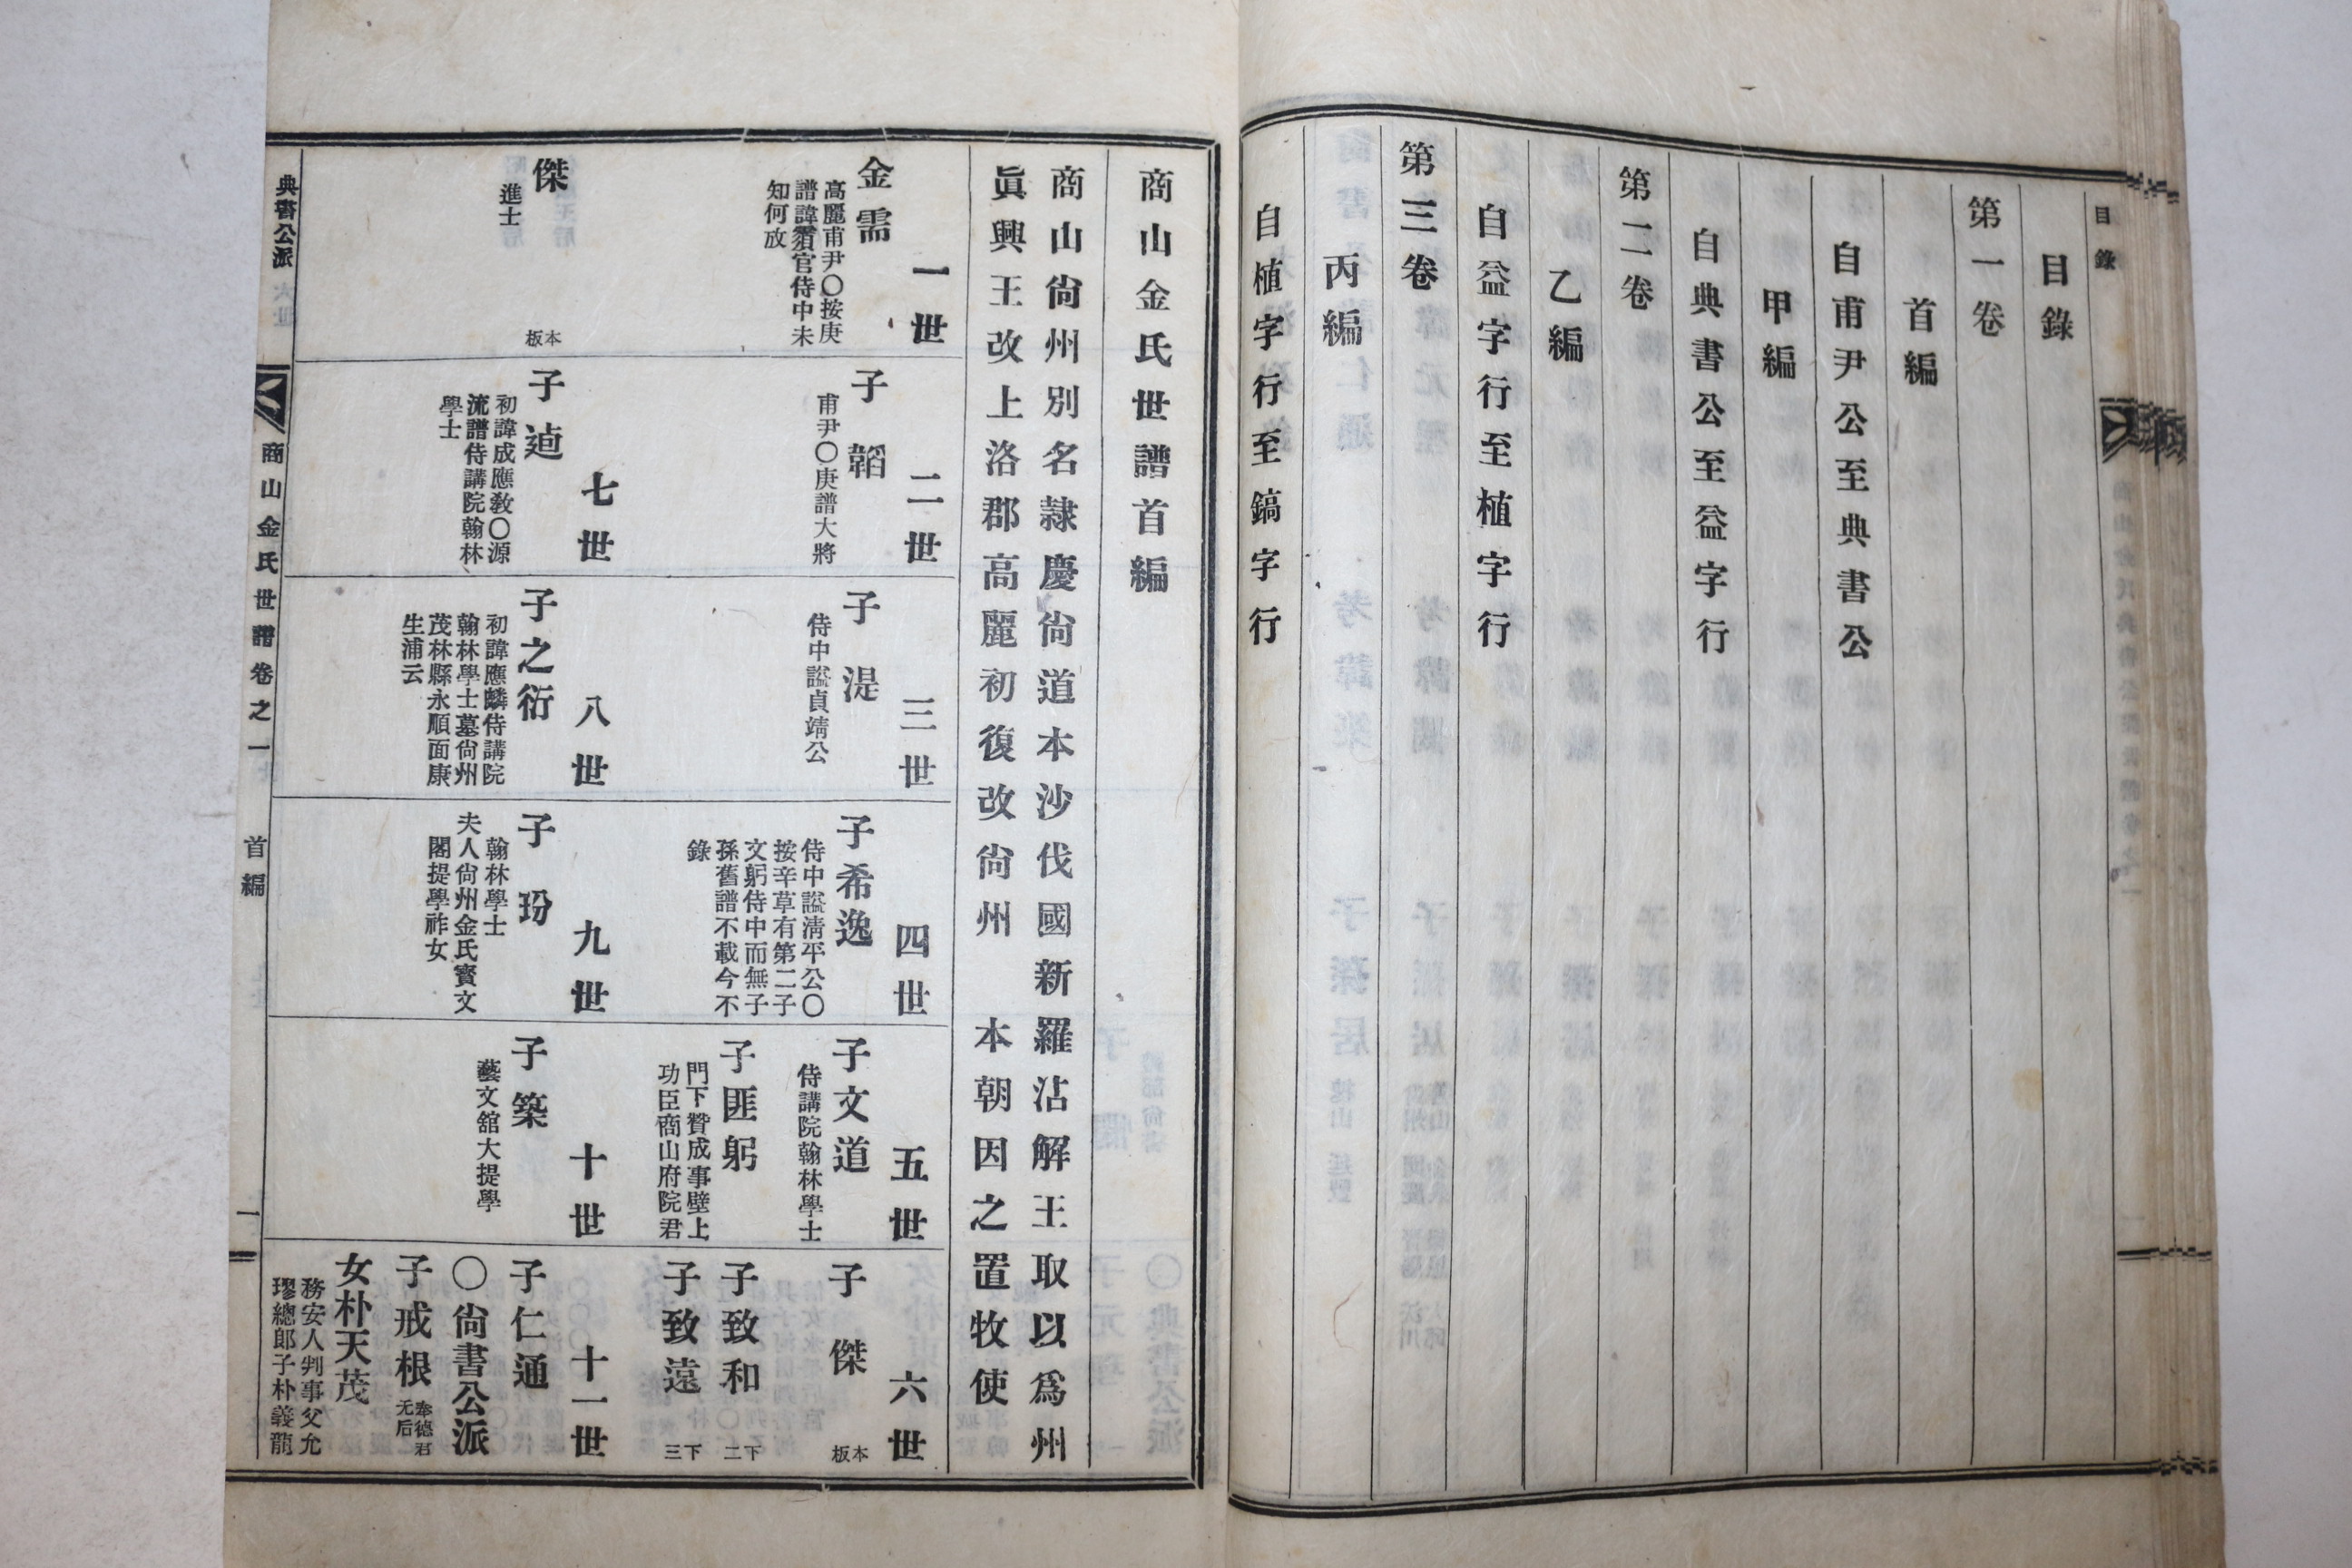 目錄
目錄
第一卷
首編
自甫尹公至典書公
甲編
自典書公至益字行
第二卷
乙編
自益字行至植字行
第三卷
丙編
自植字行至鎬字行
商山金氏世譜首編
商山尙州別名隷慶尙道本沙伐國新羅沾解王取以爲州
眞興王改上洛郡高麗初復改尙州 本朝因之置牧使
一世
金需
高麗甫尹〇按庚
譜諱須官侍中未
知何放
二世
子韜
甫尹〇庚譜大將
三世
子湜
侍中諡貞靖公
四世
子希逸
侍中諡淸平公〇
按辛草有第二子
文躬侍中而無子
孫舊譜不載今不
錄
五世
子文道
侍講院翰林學士
子匪躬
門下贊成事壁上
功臣商山府院君
六世
子傑
本板
子致和
下二
子致遠
下三
傑
進士
本板
七世
子逌
初諱成應敎〇源
流譜侍講院翰林
學士
八世
子之衍
初諱應麟侍講院
翰林學士墓尙州
茂林縣永順面康
生浦云
九世
子玢
翰林學士
夫人尙州金氏寶文
閣提學祚女
十世
子築
藝文舘大提學
十一世
子仁通
〇尙書公派
子戒根
奉德君
无后
女朴天茂
務安人判事父允
璆總郎子朴義龍
典書公派
商山金氏世譜卷之一
首編
一